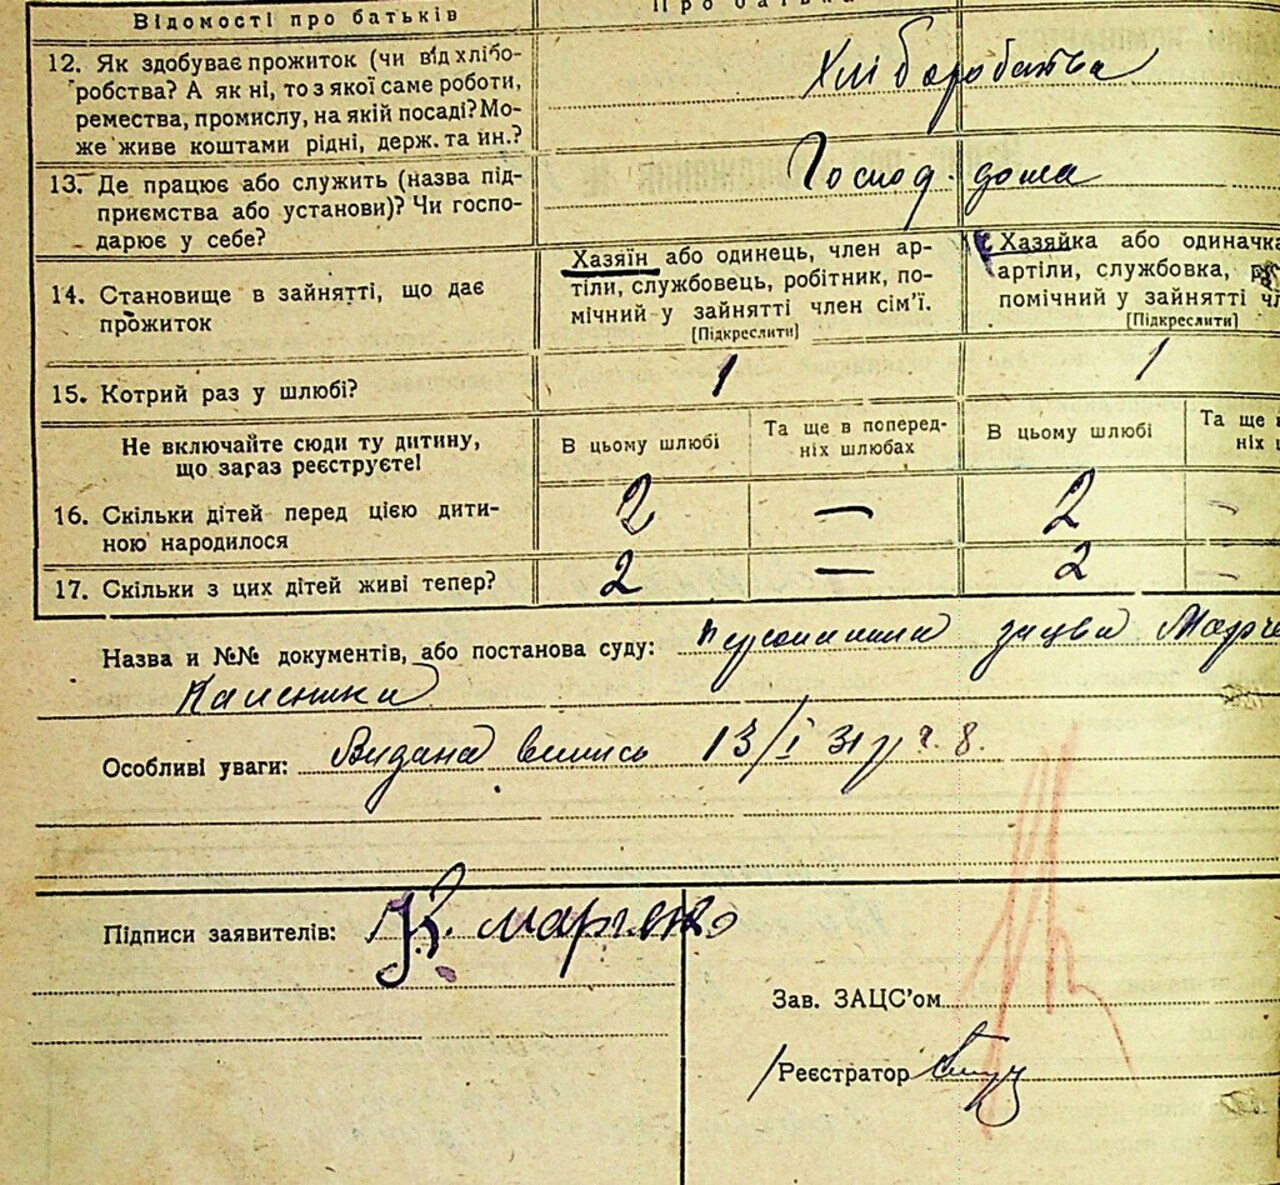 Відомості про батьків
Про батька
12. Як здобуває прожиток (чи від хлібо-
робства? А як ні, то з якої саме роботи,
ремества, промислу, на якій посаді? Мо-
же живе коштами рідні, держ. та ин.?
Хліборобства
13. Де працює або служить (назва під-
приємства або установи)? Чи госпо-
дарює у себе?
Господ. дома
14. Становище в зайнятті, що дає
прожиток
Хазяїн або одинець, член ар-
тіли, службовець, робітник, по-
мічний у зайнятті член сім'ї.
[Підкреслити]
Хазяйка або одиначка
артіли, службовка,
помічний у зайнятті чл
[Підкреслити]
15. Котрий раз у шлюбі?
1
1
Не включайте сюди ту дитину,
що зараз реєструєте!
В цьому шлюбі
Та ще в поперед-
ніх шлюбах
В цьому шлюбі
Та ще в
ніх ш
16. Скільки дітей перед цією дити-
ною народилося
2 — 2 -
17. Скільки з цих дітей живі тепер?
2 — 2 -
Назва и №№ документів, або постанова суду: Марче
Калєника
Особливі уваги: Видана випись 13/I 31 р ч. 8.
Підписи заявителів: К. Марченко
Зав. ЗАЦС'ом
Реєстратор